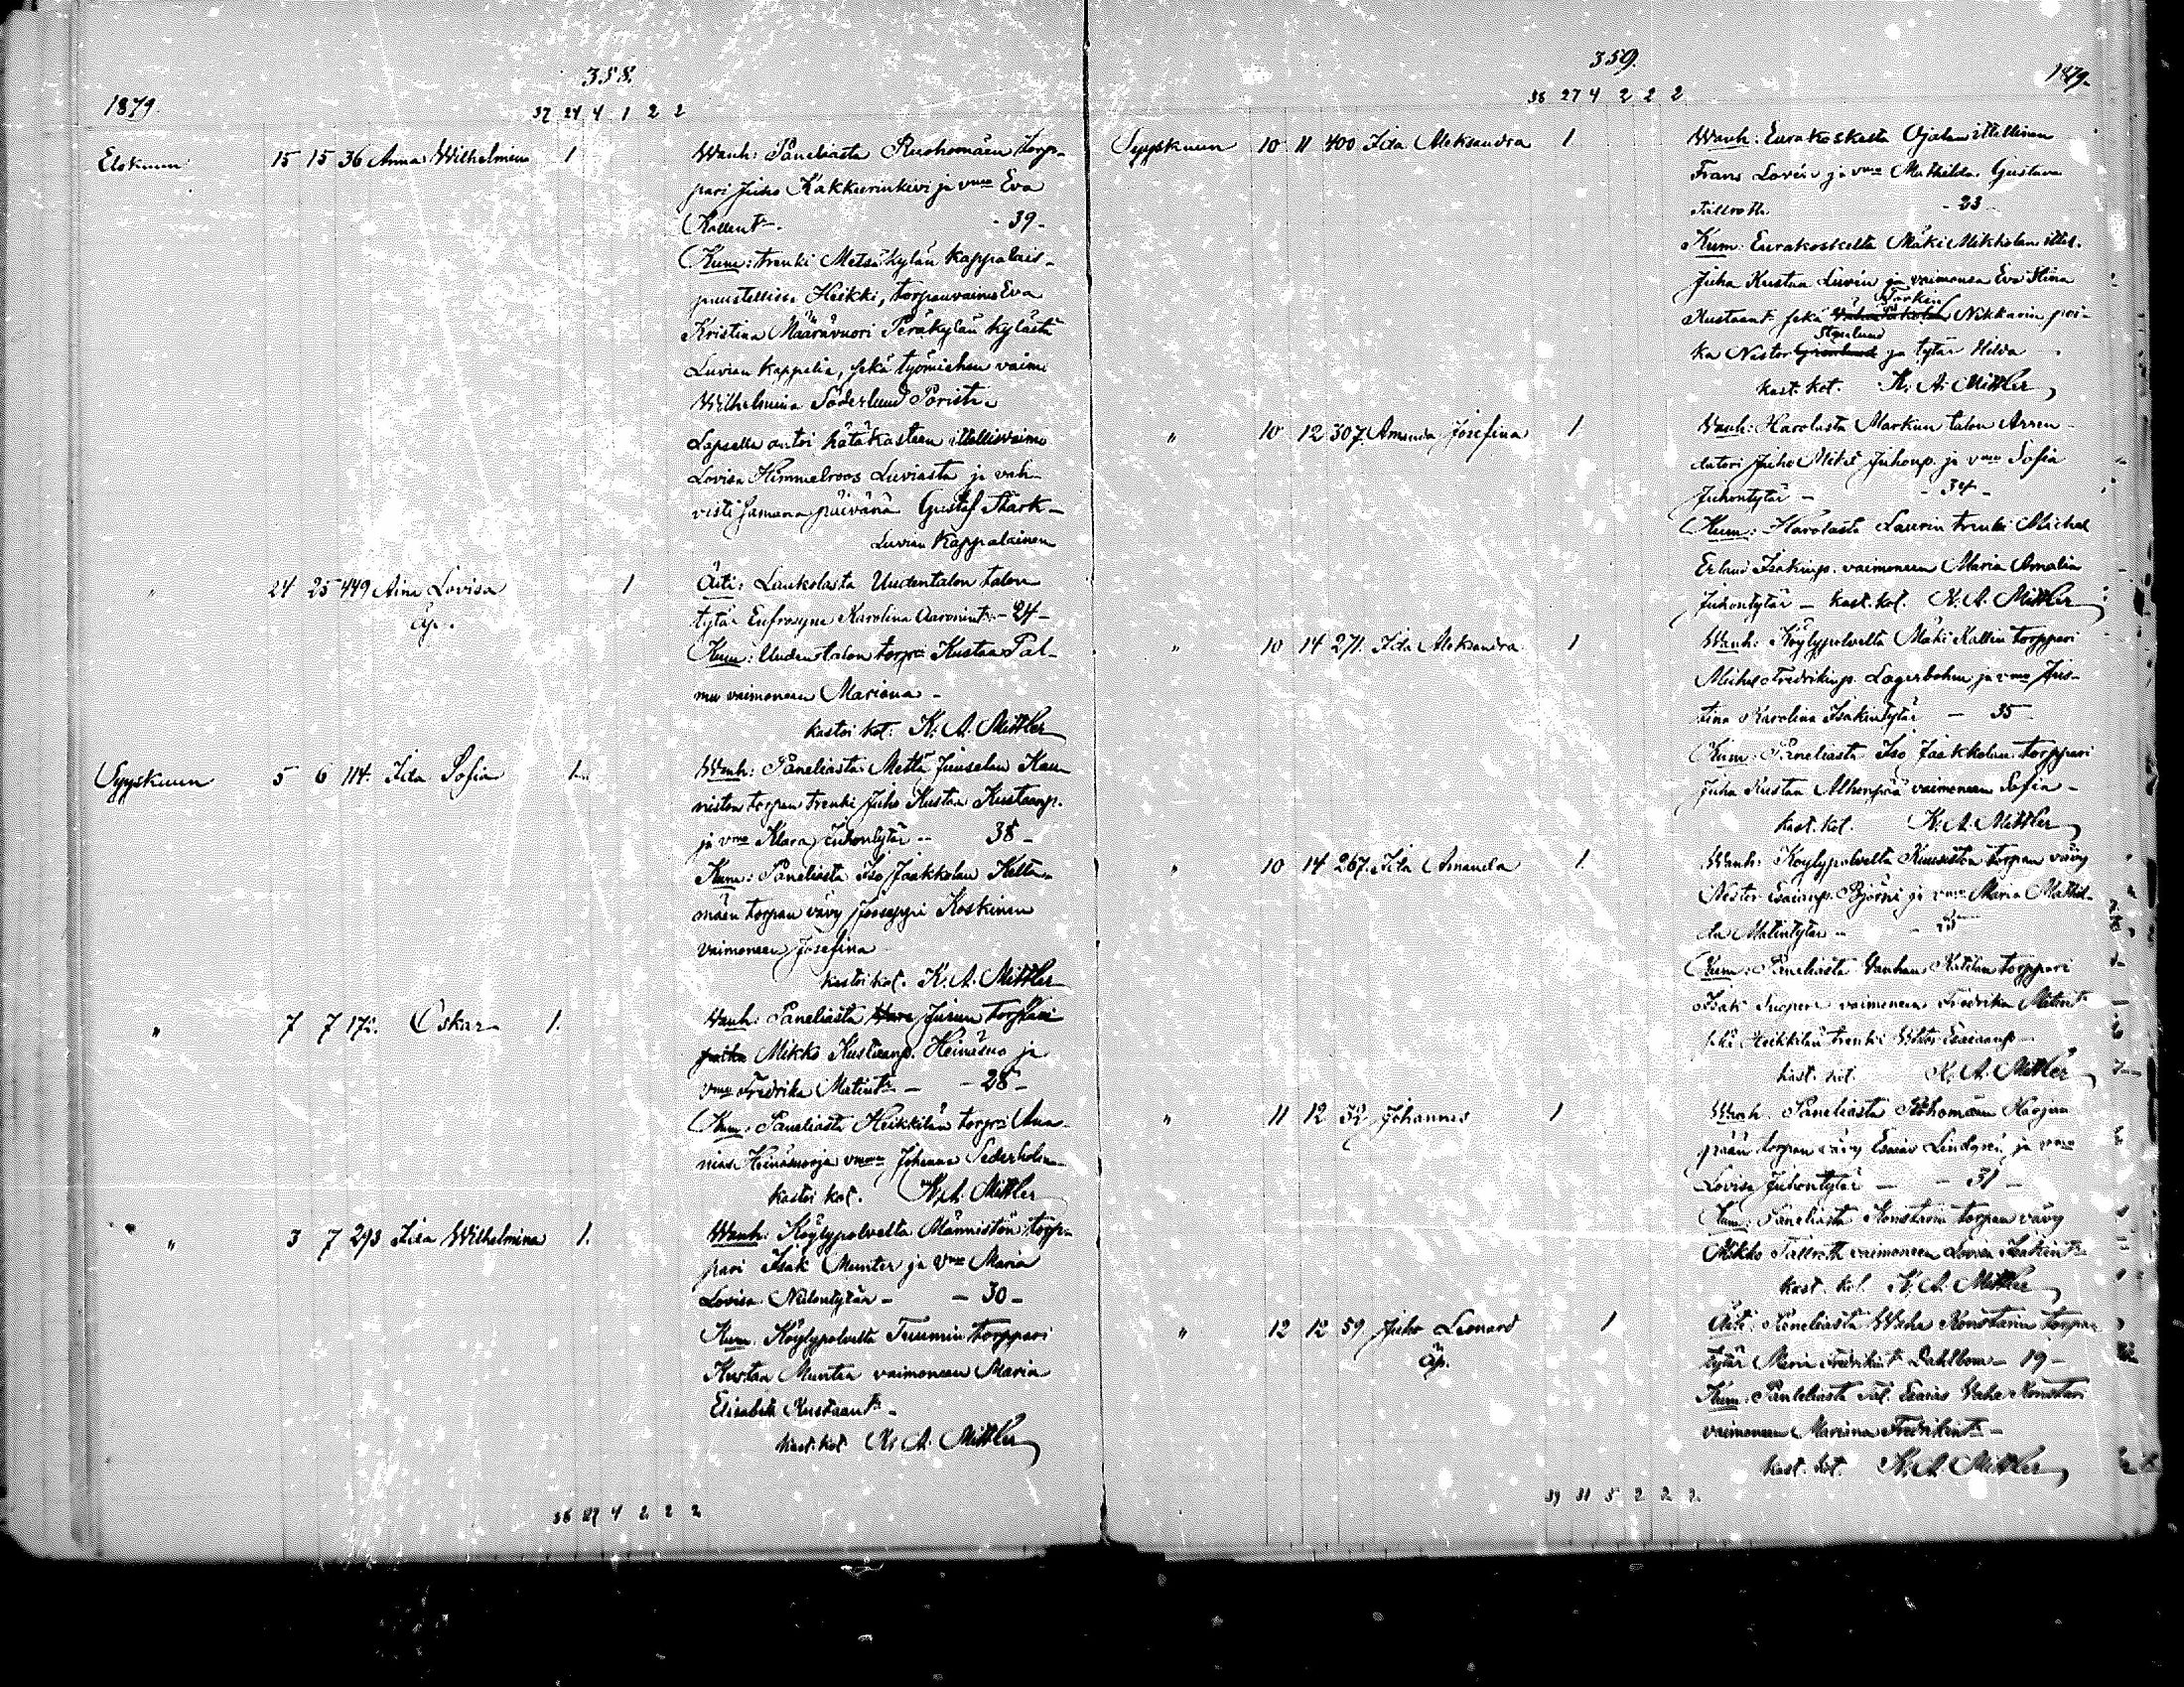 358.
1879.
37 24 4 1 2 2
Elokuun 15 15 36 Anna Wilhelmina 1 Wanh: Paneliasta Ruohomäen torp-
pari Juho Kakkurinkivi ja vmo Eva
Kallent. - 39 -
Kum: trenki Metsäkylän kappalais-
puustellissa Heikki, torpanvaimo Eva
Kristina Määrävuori Peräkylän kylästä
Luvian kappelia, sekä työmiehen vaimo
Wilhelmina Söderlund Porista.
Lapselle antoi hätäkasteen ittellisvaimo
Lovisa Himmelroos Luviasta ja vah-
visti samana päivänä Gustaf Stark -
Luvian Kappalainen
" 24 25 449 Aina Lovisa 1 Äiti: Laukolasta Uudentalon talon
Äp. tytär Eufrosyne Karolina Aaronint. - 24 -
Kum: Uudentalon torpri Kustaa Pal-
mu vaimoneen Mariana -
kastoi kot. K. A. Mittler
Syyskuun 5 6 114. Ida Sofia 1. Wanh: Paneliasta Mettä Juuselan Kau-
niston torpan trenki Juho Kustaa Kustaanp.
ja vmo Klara Juhontytär - 38 -
Kum: Paneliasta Iso Jaakkolan Kelta-
mäen torpan vävy Jooseppi Koskinen
vaimoneen Josefina
kastoi kot. K. A. Mittler
" 7 7 172. Oskar 1. Wanh: Paneliasta Juusen torppari
Mikko Kustaanp. Heinäsuo ja
vmo Fredrika Matint. - - 28 -
Kum: Paneliasta Heikkilän torpri Ana-
nias Heinäsuo ja vmo Johanna Sederholm
kastoi kot. K. A. Mittler
" 3 7 293 Iida Wilhelmina 1. Wanh: Köylypolvelta Männistön torp-
pari Isak Munter ja vmo Maria
Lovisa - 30 -
Kum. Köylypolvelta Tuumin torppari
Kustaa Muntea vaimoneen Maria
Elisabet Kustaant. -
kast. kot K. A. Mittler
38 27 4 2 2 2
359.
1879.
38 27 4 2 2 2
Syyskuun 10 11 400 Ida Aleksandra 1 Wanh: Eurakoskelta Ojalan ittellinen
Frans Lovén ja vmo Mathilda Gustava
Tällroth - 23 -
Kum: Eurakoskelta Mäki Mikkolan ittel.
Juha Kustaa Luvén ja vaimonsa Eva Stina
Torkin
Kustaant. sekä Nikkarin poi-
Stenlund
ka Nestor Grönlund ja tytär Hilda -
kast. kot. K. A. Mittler
" 10 12 307. Amanda Josefina 1 Wanh: Harolasta Markun talon Arren-
datori Juho Mikä Juhonp. ja vmo Sofia
Juhontytär - - 34 -
Kum: Harolasta Laurin trenki Michel
Erland Isakinp. vaimoneen Maria Amalia
Juhontytär - kast. kot. K. A. Mittler
" 10 14 271. Ida Aleksandra 1 Wanh: Köylypolvelta Mäki Kallin torppari
Michel Fredrikinp. Lagerbohm ja vmo Jus-
tina Karolina Isakintytär - 35 -
Kum: Paneliasta Iso Jaakkolan torppari
Juha Kustaa Alhonpää vaimoneen Sofia -
kast. kot. K. A. Mittler
" 10 14 267. Ida Amanda 1. Wanh: Köylypolvelta Kuusiston torpan vävy
Nestor Esaianp. Björni ja vmo Maria Mathil-
da Matintytär -
Kum: Paneliasta Vanhan Katilan torppari
Isak vaimoneen Fredrika Matint.
sekä Heikkilän trenki Wiktor Esaianp -
kast. kot. K. A. Mittler
" 11 12 32 Johannes 1 Wanh. Paneliasta Ruohomäen Harjun
pään torpan vävy Esaias Lindgren ja vmo
Lovisa Juhontytär - - 31 -
Kum: Paneliasta Konstarin torpan vävy
Mikko Tällroth vaimoneen Lovisa Isakint.
kast. kot. K. A. Mittler
" 12 12 59 Juho Leonard 1 Äiti: Paneliasta Waha Konstarin torpan
Äp. tytär Maria Fredrikint. Dahlbom - 19 -
Kum: Paneliasta Esaias Waha Konstari
vaimoneen Mariana Fredrikint. -
kast. kot. K. A. Mittler
39 31 5 2 2 2.